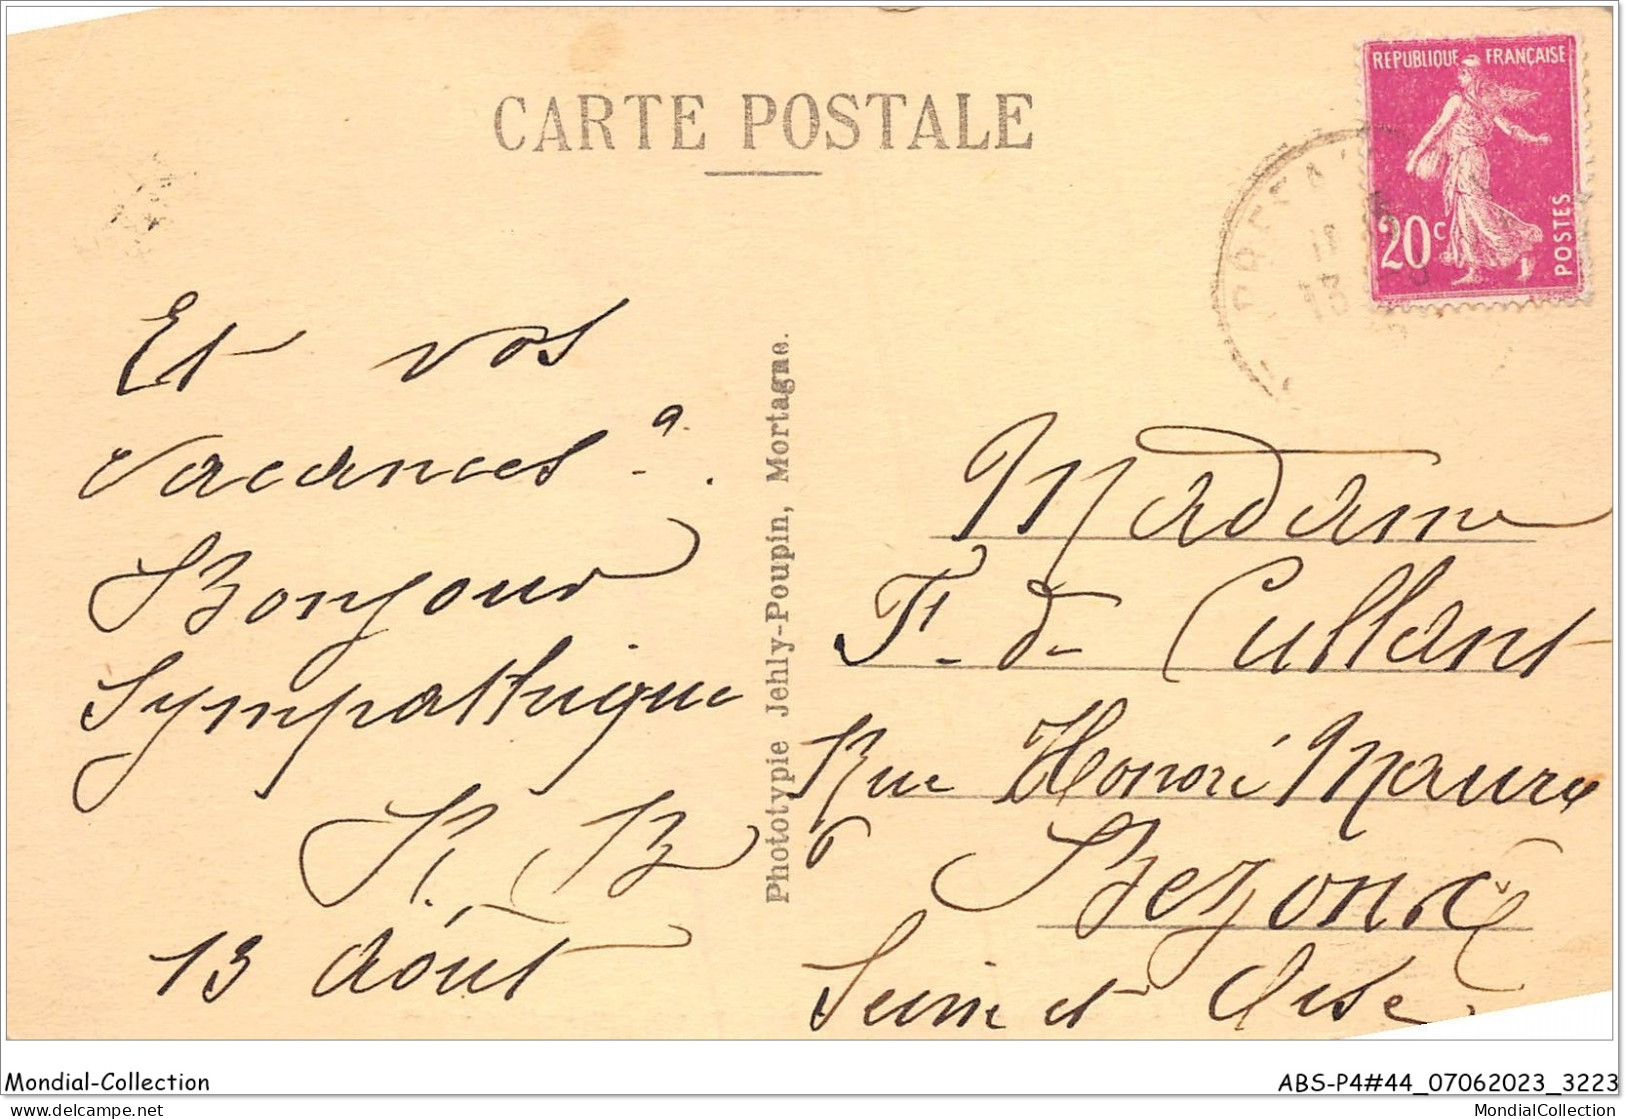 CARTE POSTALE
REPUBLIQUE FRANÇAISE
20c
POSTES
13
Et vos
vacances ?.
Bonjour
Sympathique
K. B
13 Août
Phototypie Jehly-Poupin, Mortagne.
Madame
F. de Cullant
6 Rue Honoré Maure
Bezons
Seine et Oise
Mondial-Collection
ABS-P4#44_07062023_3223
www.delcampe.net
MondialCollection